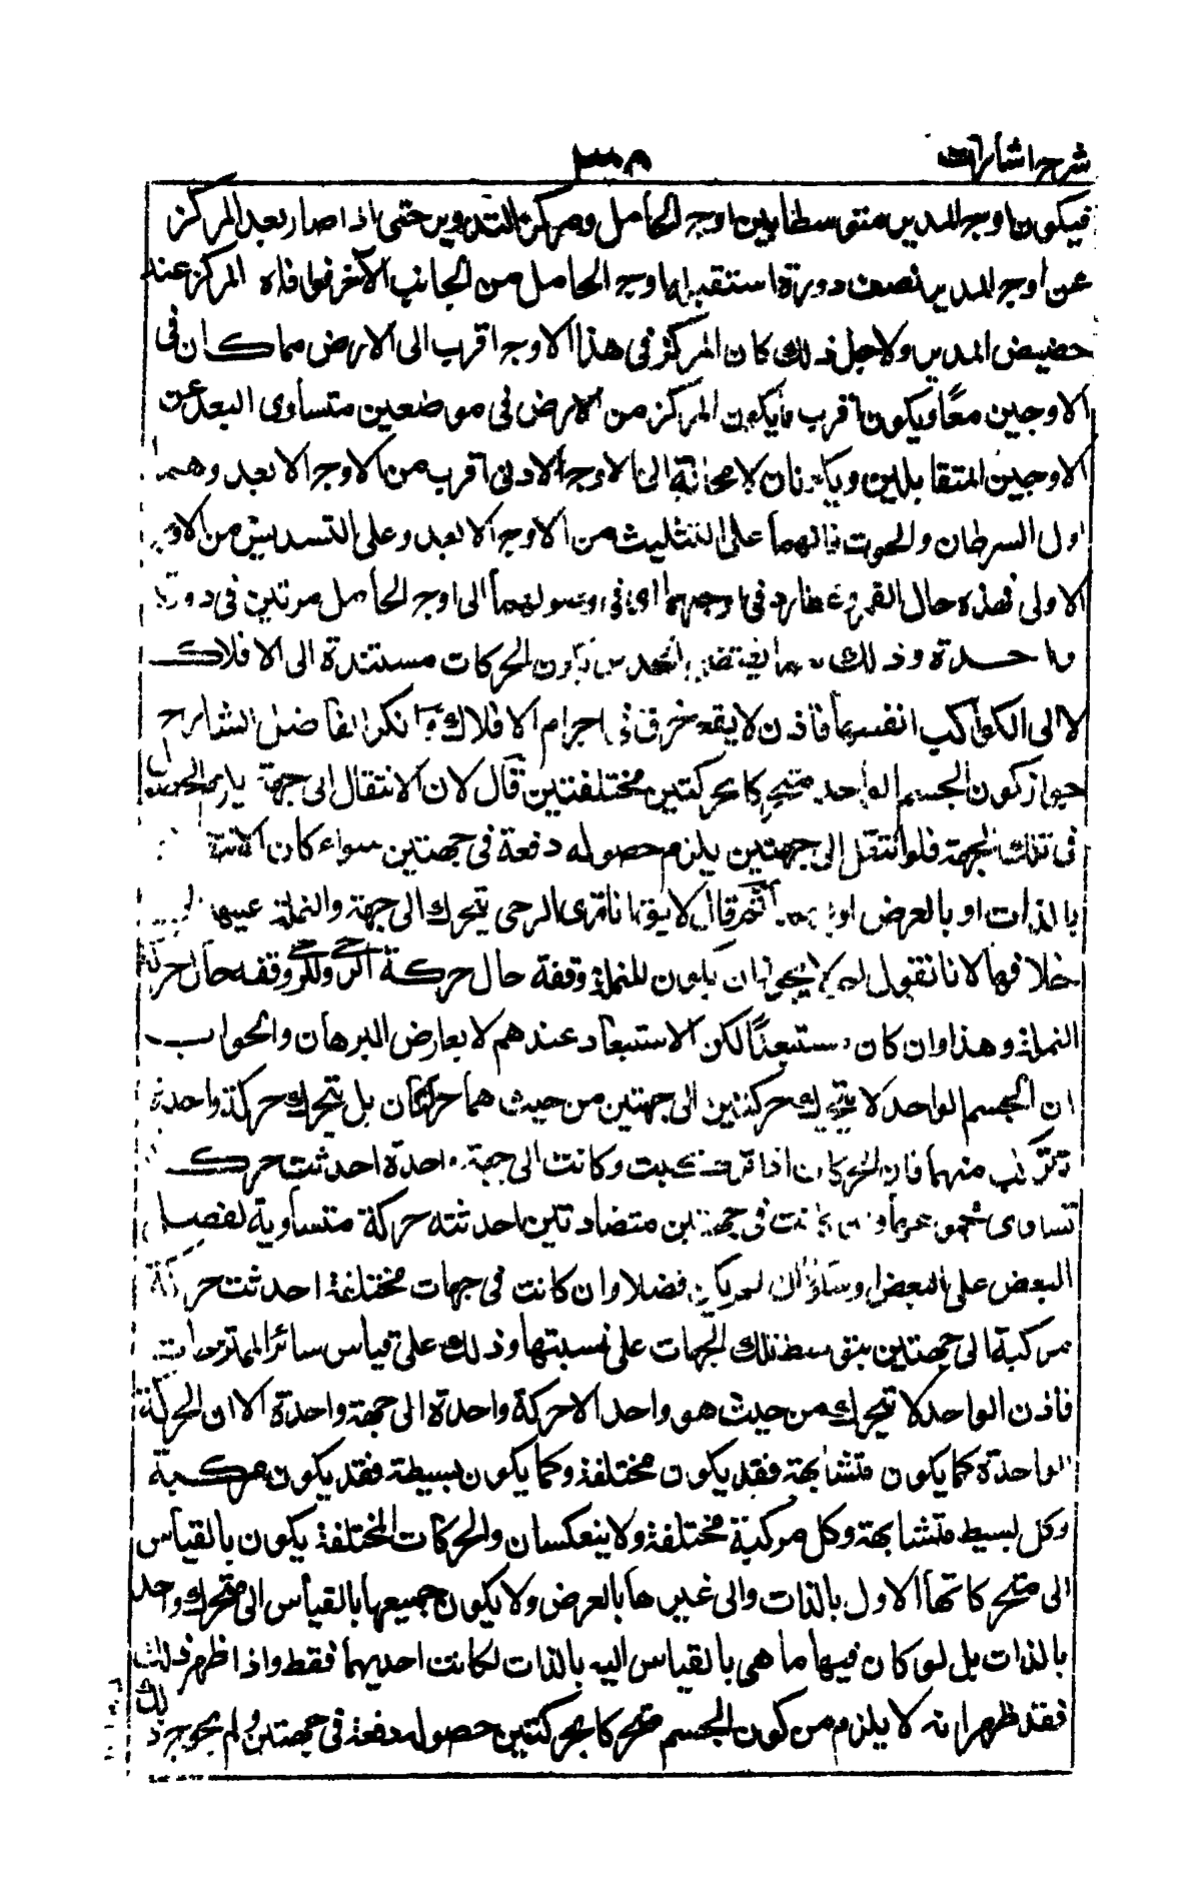 شرح اشارات
فيكون اوجه المدير متوسطا بين اوجه الحامل ومركز التدوير حتى اذا صار بعد المركز
عن اوجه المدير نصف دورة استقبله اوجه الحامل من الجانب الآخر فوافاه المركز عند
حضيض المدير ولاجل ذلك كان المركز فى هذا الاوجه اقرب الى الارض مما كان فى
الاوجين معًا ويكون اقرب ما يكون المركز من الارض فى موضعين متساوى البعد عن
الاوجين المتقابلين ويكونان لا محالة الى الاوجه الادنى اقرب من الاوجه الابعد وهما
اول السرطان والحوت فانهما على التثليث من الاوجه الابعد وعلى التسديس من الاوجه
الاولى فهذه حال القمر وعطارد فى اوجيهما اى فى وصولهما الى اوجه الحامل مرتين فى دورة
واحدة وذلك مما يقتضى الحدس بكون الحركات مستندة الى الافلاك
لا الى الكواكب انفسها فاذن لا يقع خرق فى اجرام الافلاك وانكر الفاضل الشارح
جواز كون الجسم الواحد متحركا بحركتين مختلفتين قال لان الانتقال الى جهة يلزمه الحصول
فى تلك الجهة فلو انتقل الى جهتين يلزم حصوله دفعة فى جهتين سواء كان الانتقال
بالذات او بالعرض ثم قال لا يق انا نرى الرحى يتحرك الى جهة والنملة عليها
خلافها لانا نقول لم لا يجوز ان يكون للنملة وقفة حال حركة الرحى وللرحى وقفه حال حركة
النملة وهذا وان كان مستبعدًا لكن الاستبعاد عندهم لا يعارض البرهان والجواب
ان الجسم الواحد لا يتحرك حركتين الى جهتين من حيث هما حركتان بل يتحرك حركة واحدة
تتركب منهما فان الحركات اذا تركبت وكانت الى جهة واحدة احدثت حركة
تساوى مجموعها وان كانت فى جهتين متضادتين احدثته حركة متساوية لفضل
البعض على البعض او سكونا ان لم يكن فضلا وان كانت فى جهات مختلفة احدثت حركة
مركبة الى جهتين يتوسط تلك الجهات على نسبتها وذلك على قياس سائر الممتزجات
فاذن الواحد لا يتحرك من حيث هو واحد الا حركة واحدة الى جهة واحدة الا ان الحركة
الواحدة كما يكون متشابهة فقد يكون مختلفة وكما يكون بسيطة فقد يكون مركبة
وكل بسيط متشابهة وكل مركبة مختلفة ولا ينعكسان والحركات المختلفة يكون بالقياس
الى متحركاتها الاول بالذات والى غيرها بالعرض ولا يكون جميعها بالقياس الى متحرك واحد
بالذات بل لو كان فيها ما هى بالقياس اليه بالذات لكانت احديهما فقط واذا ظهر ذلك
فقد ظهر انه لا يلزم من كون الجسم متحركا بحركتين حصوله دفعة فى جهتين ولم يحوجه ذلك